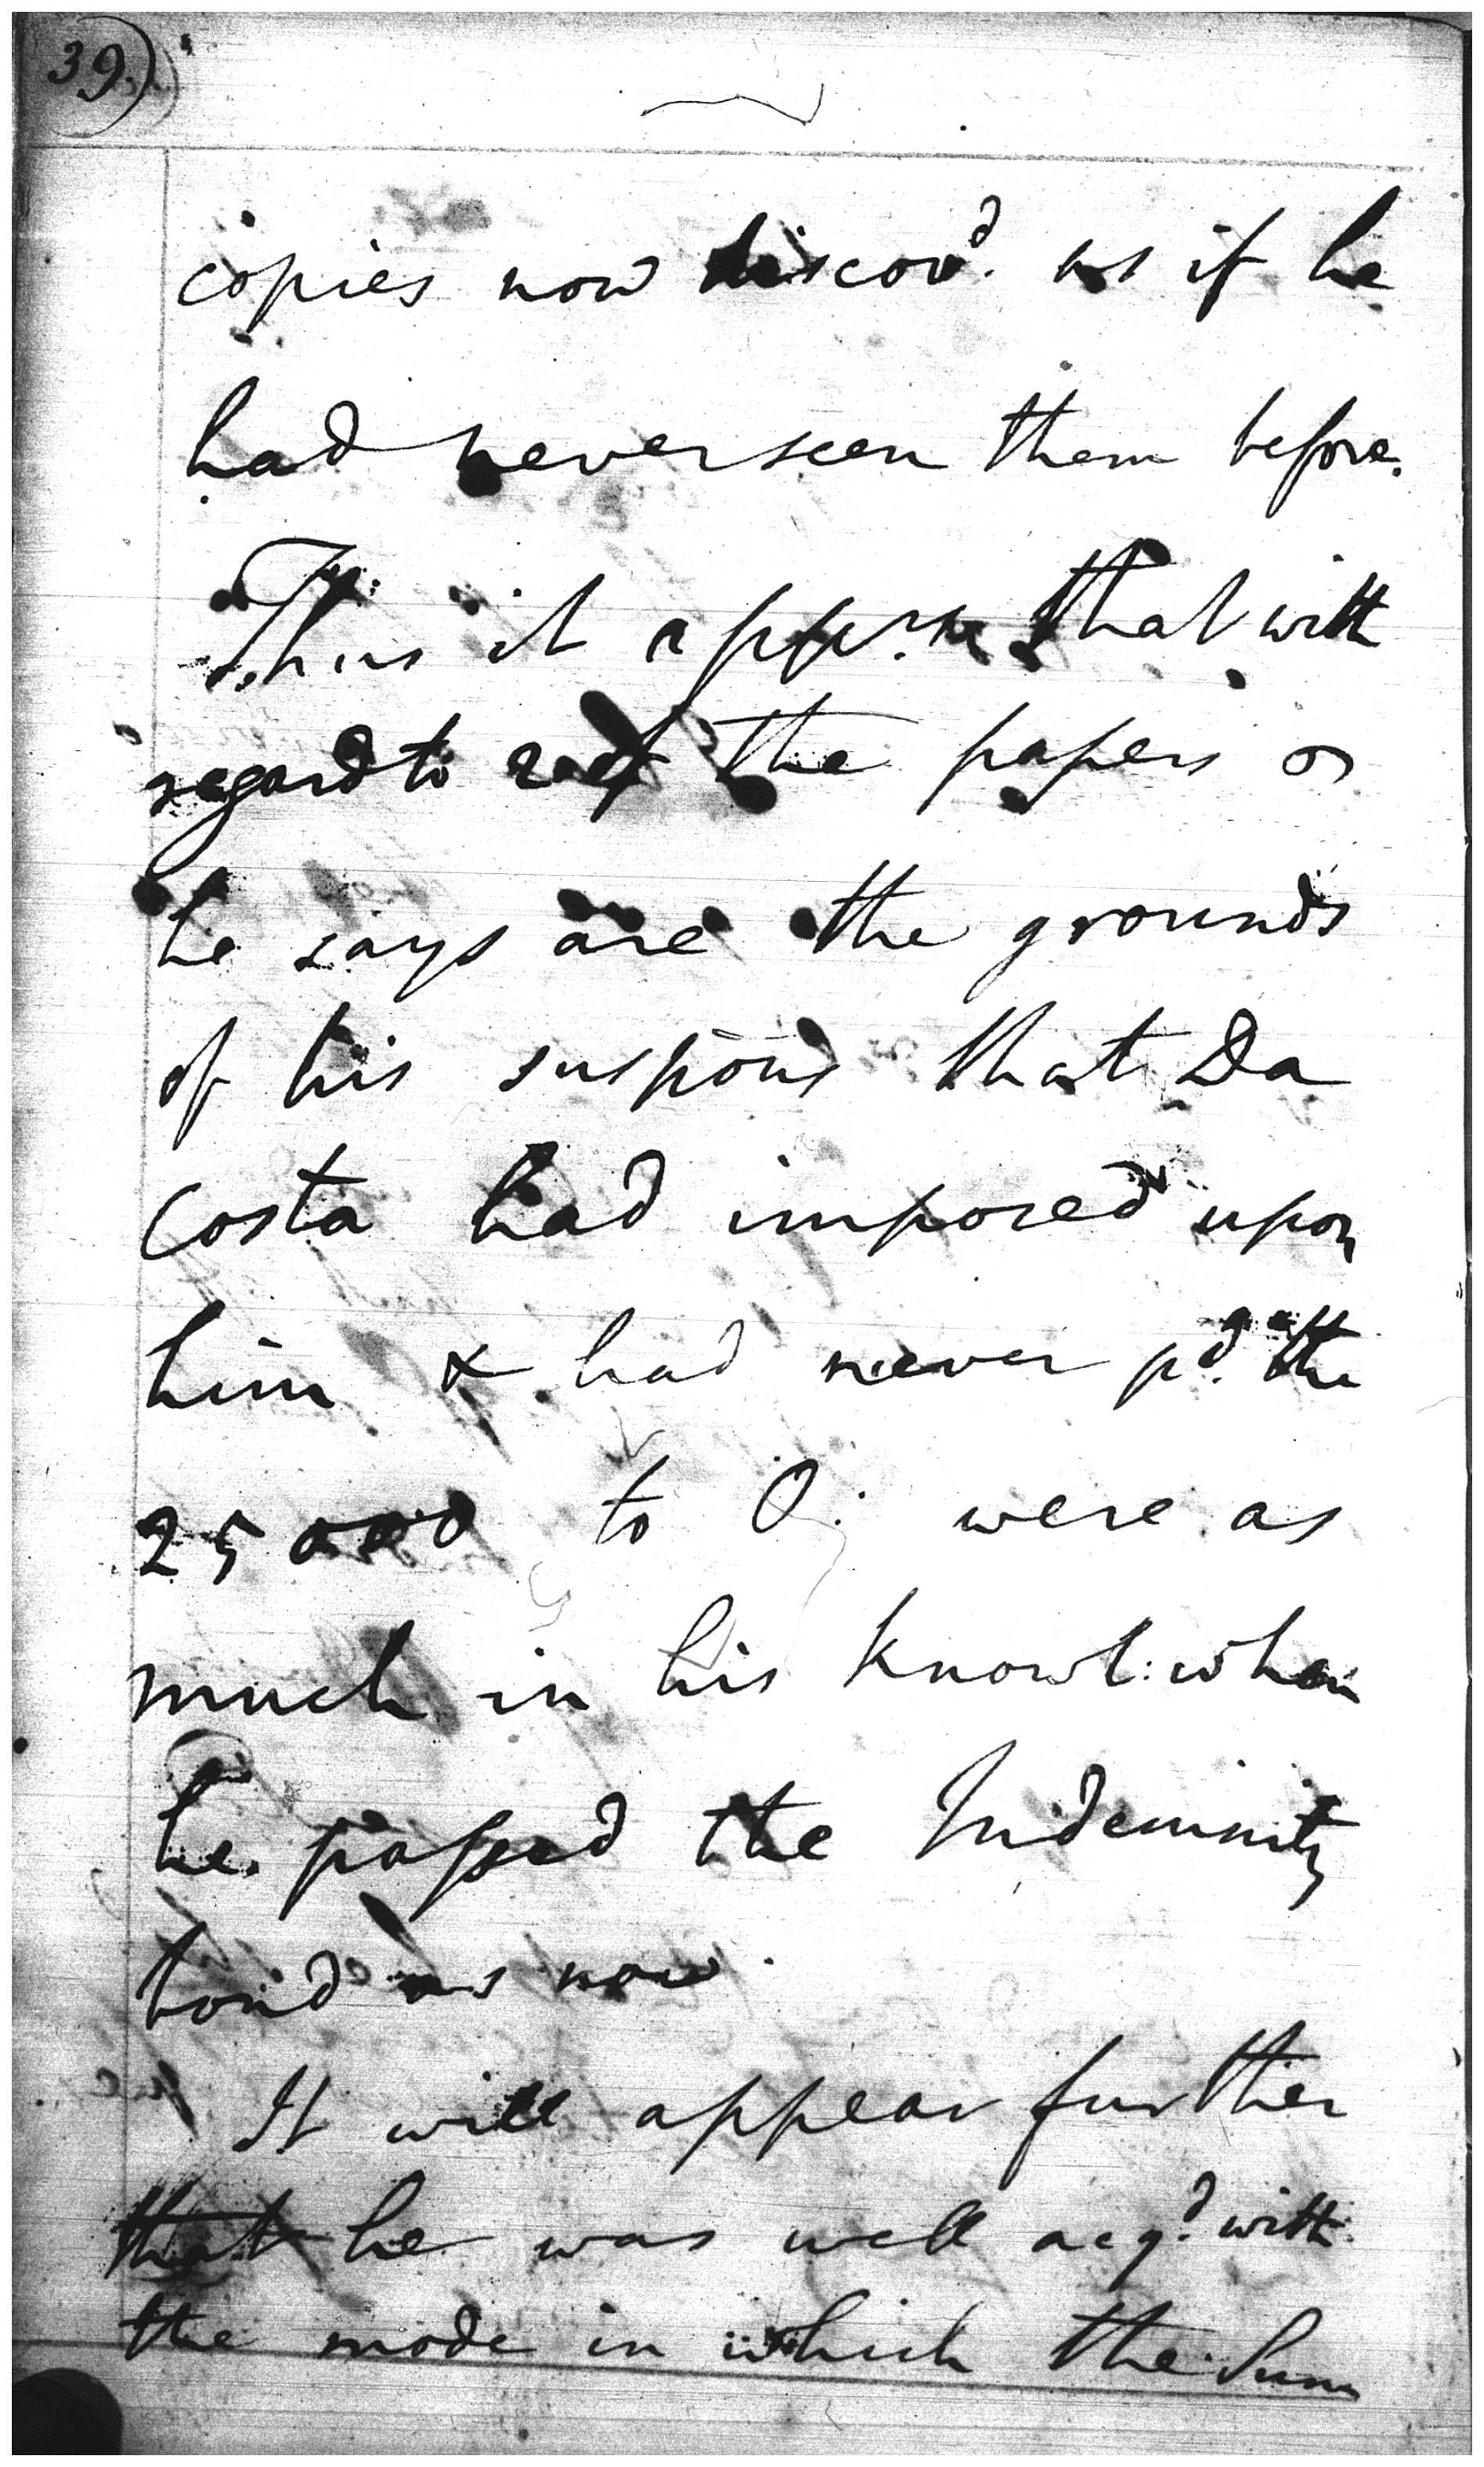 39.)
copies now discov<sup>d</sup>. as if he
had never seen them before.
Thus it appears that with
regard to 2 of the papers w<sup>h</sup>
he says are the grounds
of his suspōns that Da
Costa had imposed upon
him & had never p<sup>d</sup>. the
25000 to O: were as
much in his Knowl: when
he passed the Indemnity
bond as now.
It will appear further
that he was well acq<sup>d</sup>. with
the mode in which the Sum